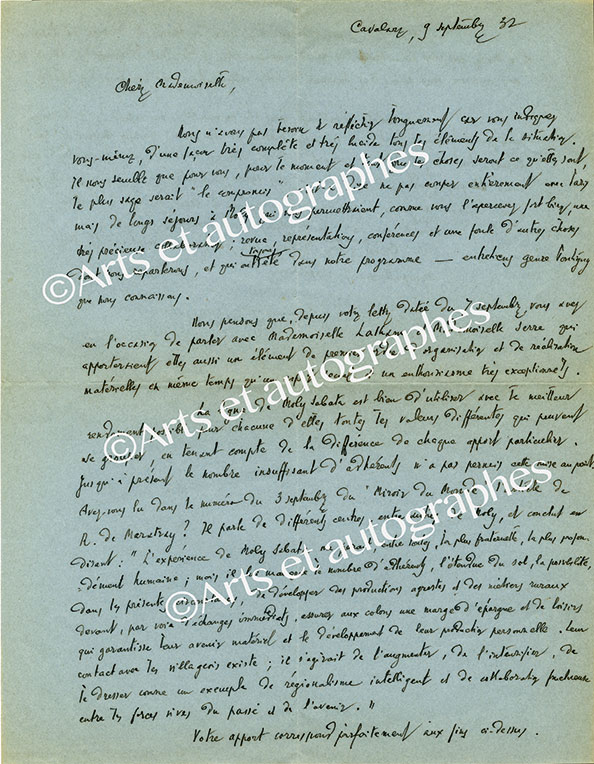 Cavalaire, 9 septembre 32
Chère Mademoiselle,
Nous n'avons pas besoin de réfléchir longuement car vous indiquez
vous-même, d'une façon très complète et très lucide tous les éléments de la situation.
Il nous semble que pour vous, pour le moment et les choses seront ce qu'elles sont,
le plus sage serait "le compromis" ne pas couper entièrement avec
mais de longs séjours à Moly qui vous permettraient, comme vous l'apercevez fort bien, une
très précieuse collaboration ; revue, représentation, conférences et une foule d'autres choses
dont nous reparlerons, et qui dans notre programme — entretiens genre Pontigny
que nous connaissons.
Nous pensons que, depuis votre lettre datée du 7 septembre, vous avez
eu l'occasion de parler avec Mademoiselle et Mademoiselle Serre qui
apporteraient elles aussi un élément de premier d'organisation et de réalisation
matérielles en même temps qu'un et un enthousiasme très exceptionnels.
de Moly Sabata est bien d'utiliser avec le meilleur
rendement possible pour chacune d'elles toutes les valeurs différentes qui peuvent
se grouper, en tenant compte de la différence de chaque apport particulier.
Jusqu'à présent le nombre insuffisant d'adhérents n'a pas permis cette mise au point.
Avez-vous lu dans le numéro du 3 septembre du "Miroir du Monde" de
R. de ? Il parle de différents centres, entre autres de Moly, et conclut en
disant : "L'expérience de Moly Sabata me paraît entre toutes, la plus fraternelle, la plus profon-
dément humaine ; mais il lui manque le nombre d'adhérents, l'étendue du sol, la possibilité,
dans les présentes circonstances, de développer des productions agrestes et des métiers ruraux
devant, par voie d'échanges immédiats, assurer aux colons une marge d'épargne et de loisirs
qui garantisse leur avenir matériel et le développement de leur production personnelle. Leur
contact avec les villageois existe ; il s'agirait de l'augmenter, de l'intensifier, de
le dresser comme un exemple de régionalisme intelligent et de collaboration fructueuse
entre les forces vives du passé et de l'avenir."
Votre apport correspond parfaitement aux fins ci-dessus.
©Arts et autographes
©Arts et autographes
©Arts et autographes
©Arts et autographes